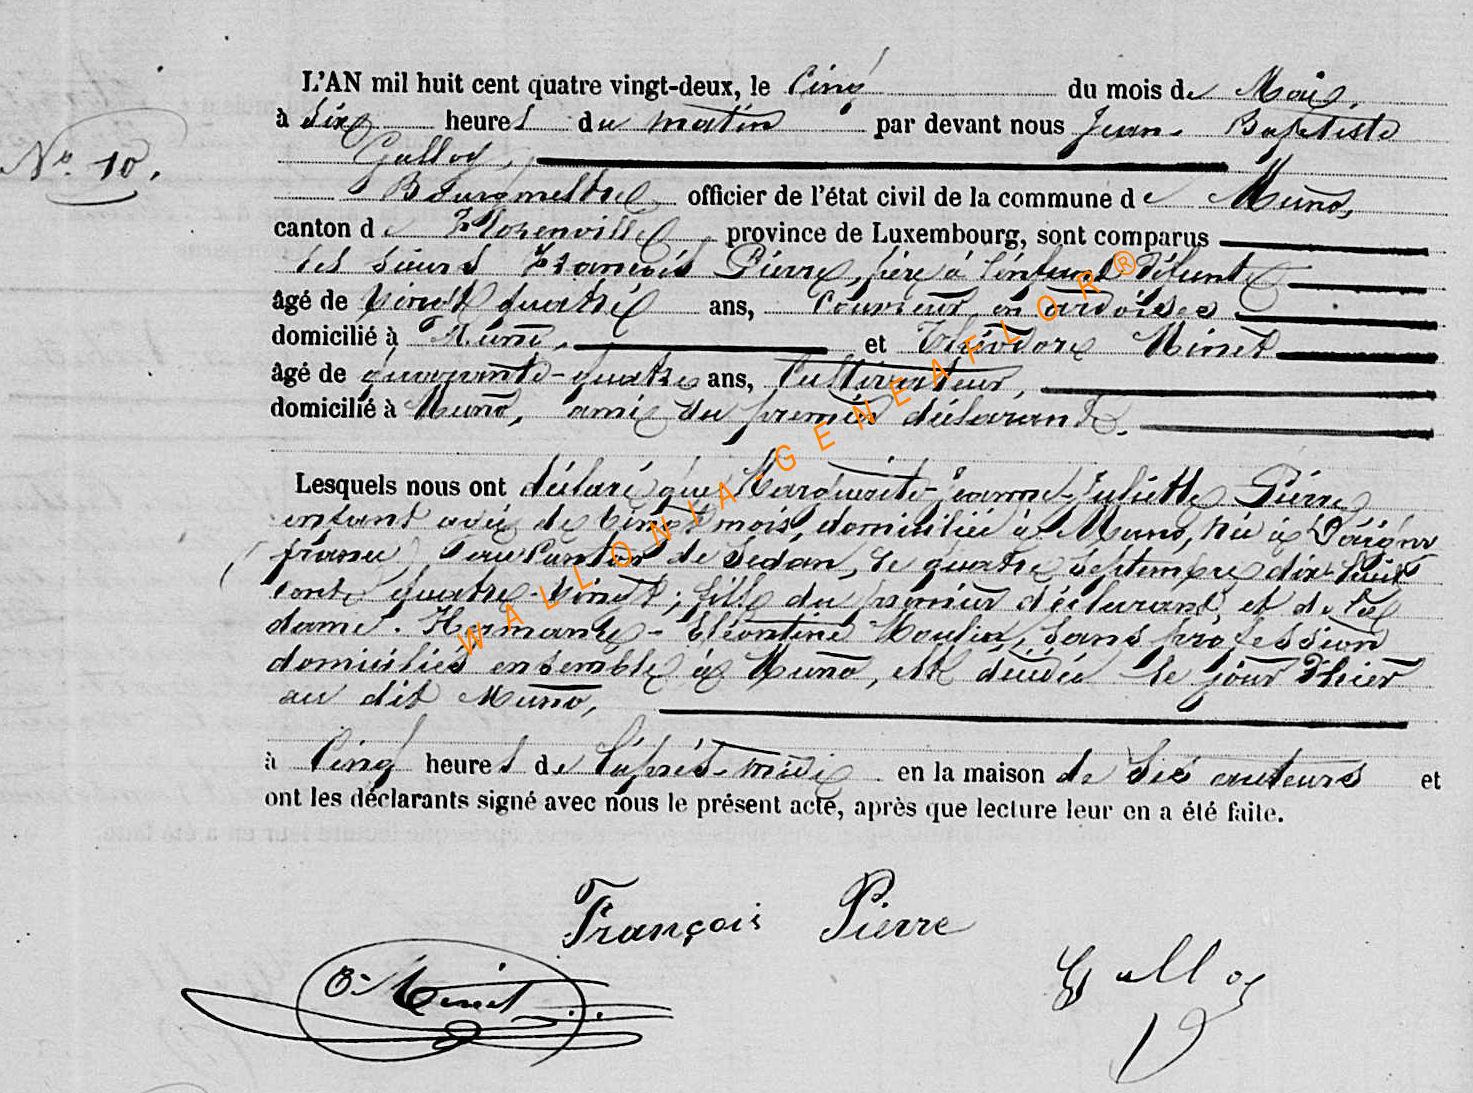 L'AN mil huit cent quatre vingt-deux, le Cinq du mois de Mai,
No 10.
à Six heures du matin par devant nous Jean-Baptiste
Galloy,
Bourgmestre officier de l'état civil de la commune de Muno,
canton de Florenville, province de Luxembourg, sont comparus
les sieurs François Pierre, père à l'enfant défunte
âgé de vingt quatre ans, Couvreur en ardoises
domicilié à Muno, et Théodore Minet
âgé de quarante-quatre ans, Cultivateur,
domicilié à Muno, ami du premier déclarant.
Lesquels nous ont déclaré que Marguerite-Jeanne-Juliette Pierre
enfant agée de vingt mois, domiciliée à Muno, née à Daigny
(france) Canton de Sedan, le quatre septembre dix-huit
cent quatre-vingt; fille du premier déclarant et de la
dame Hermance-Léontine Moulin, sans profession
domiciliés ensemble à Muno, est décédée le jour d'hier
au dit Muno,
à Cinq heures de l'après-midi en la maison de Ses auteurs et
ont les déclarants signé avec nous le présent acte, après que lecture leur en a été faite.
François Pierre
Minet
Galloy
WALLONIA-GENEAFLOR®